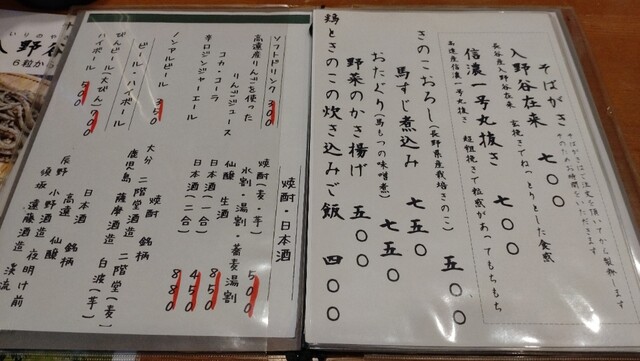 そばがき
そばがきはご注文を頂いてから製粉します
そのためお時間をいただきます
入野谷在来 七〇〇
長谷産入野谷在来 玄挽きでねっとりとした食感
信濃一号丸抜き 七〇〇
高遠産信濃一号丸抜き 超粗挽きで粒感があってもちもち
きのこおろし(長野県産栽培きのこ) 五〇〇
馬すじ煮込み 七五〇
おたぐり(馬もつの味噌煮) 七五〇
野菜のかき揚げ 五〇〇
鶏ときのこの炊き込みご飯 四〇〇
ソフトドリンク 300
高遠産りんごを使った
りんごジュース
コカ・コーラ
辛口ジンジャーエール
ノンアルビール 350
ビール・ハイボール
びんビール(大びん) 700
ハイボール 500
焼酎・日本酒
焼酎(麦・芋) 500
水割 湯割 蕎麦湯割
仙醸 生酒 850
日本酒(一合) 450
日本酒(二合) 880
焼酎 銘柄
大分 二階堂酒造 二階堂(麦)
鹿児島 薩摩酒造 白波(芋)
日本酒 銘柄
高遠 仙醸
辰野 小野酒造 夜明け前
須坂 遠藤酒造 渓流
いりのや
入野谷
6粒から